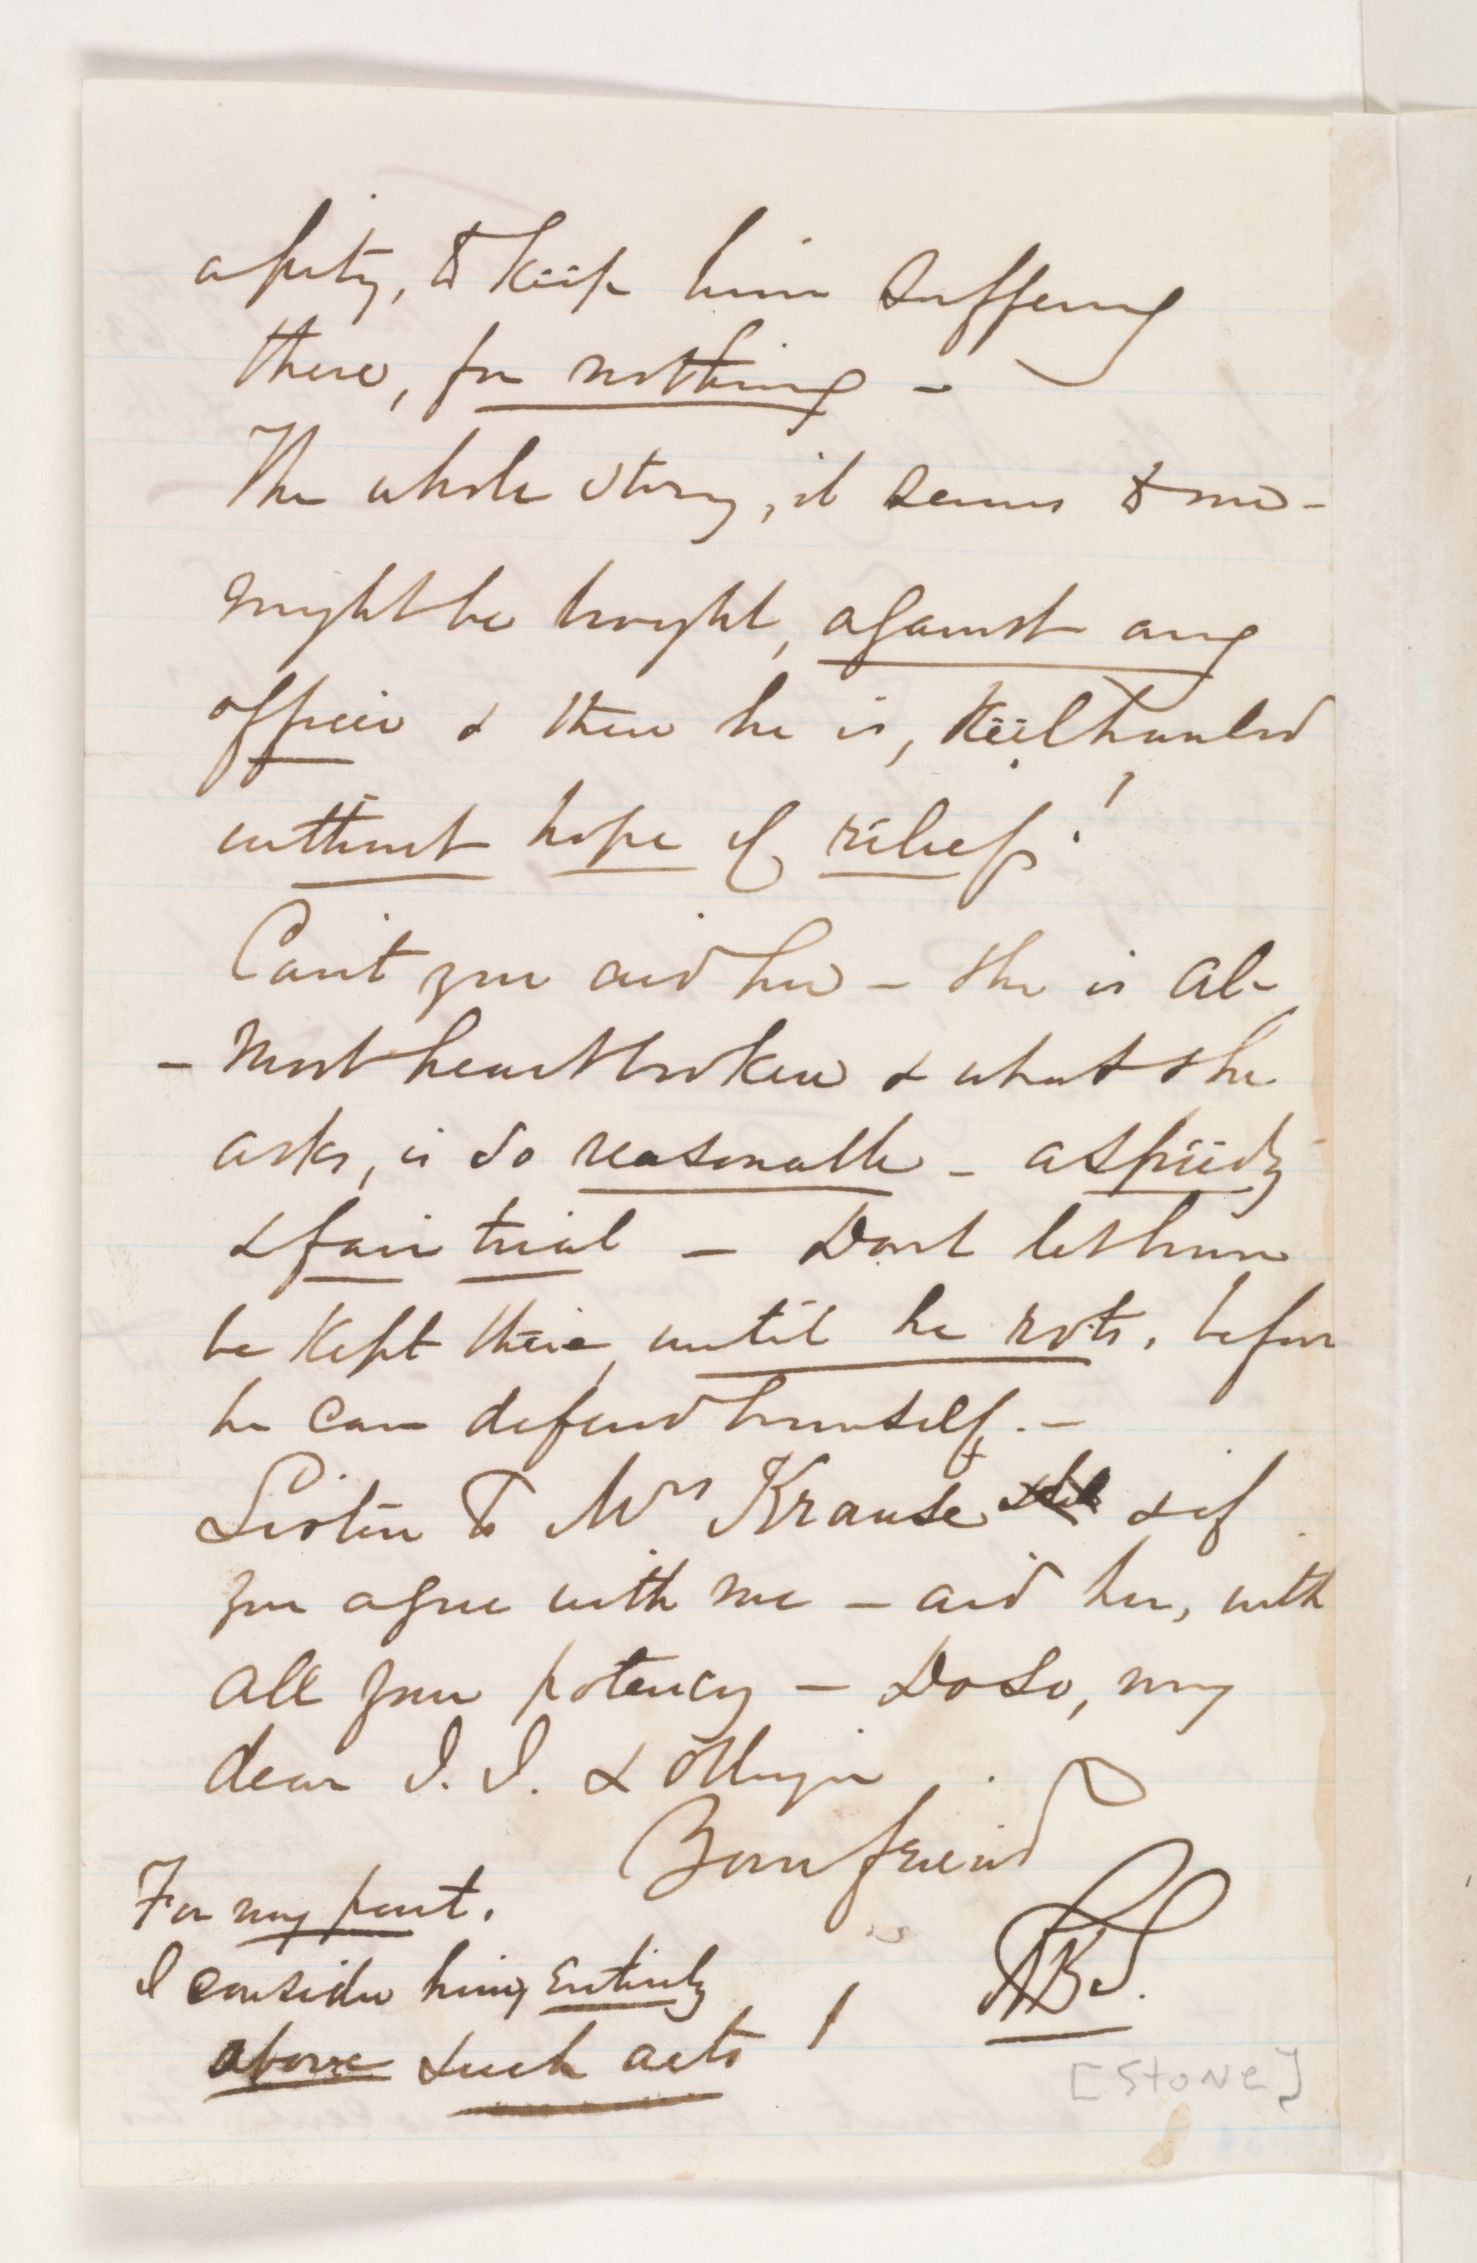 a pity, to keep him suffering
there, for nothing -
The whole story, it seems to me -
might be brought, against any
officer & there he is, Keelhauled
without hope of relief!
Can't you aid her - she is al-
- most heartbroken & what she
asks, is so reasonable - a speedy
& fair trial - Dont let him
be kept there, until he rots, before
he can defend himself. -
Listen to Mrs Krause & if
you agree with me - aid her, with
all your potency - Do so, my
dear J. J. & oblige
Your friend
ABS.
For my part.
I consider him, entirely
above such acts!
[Stone]